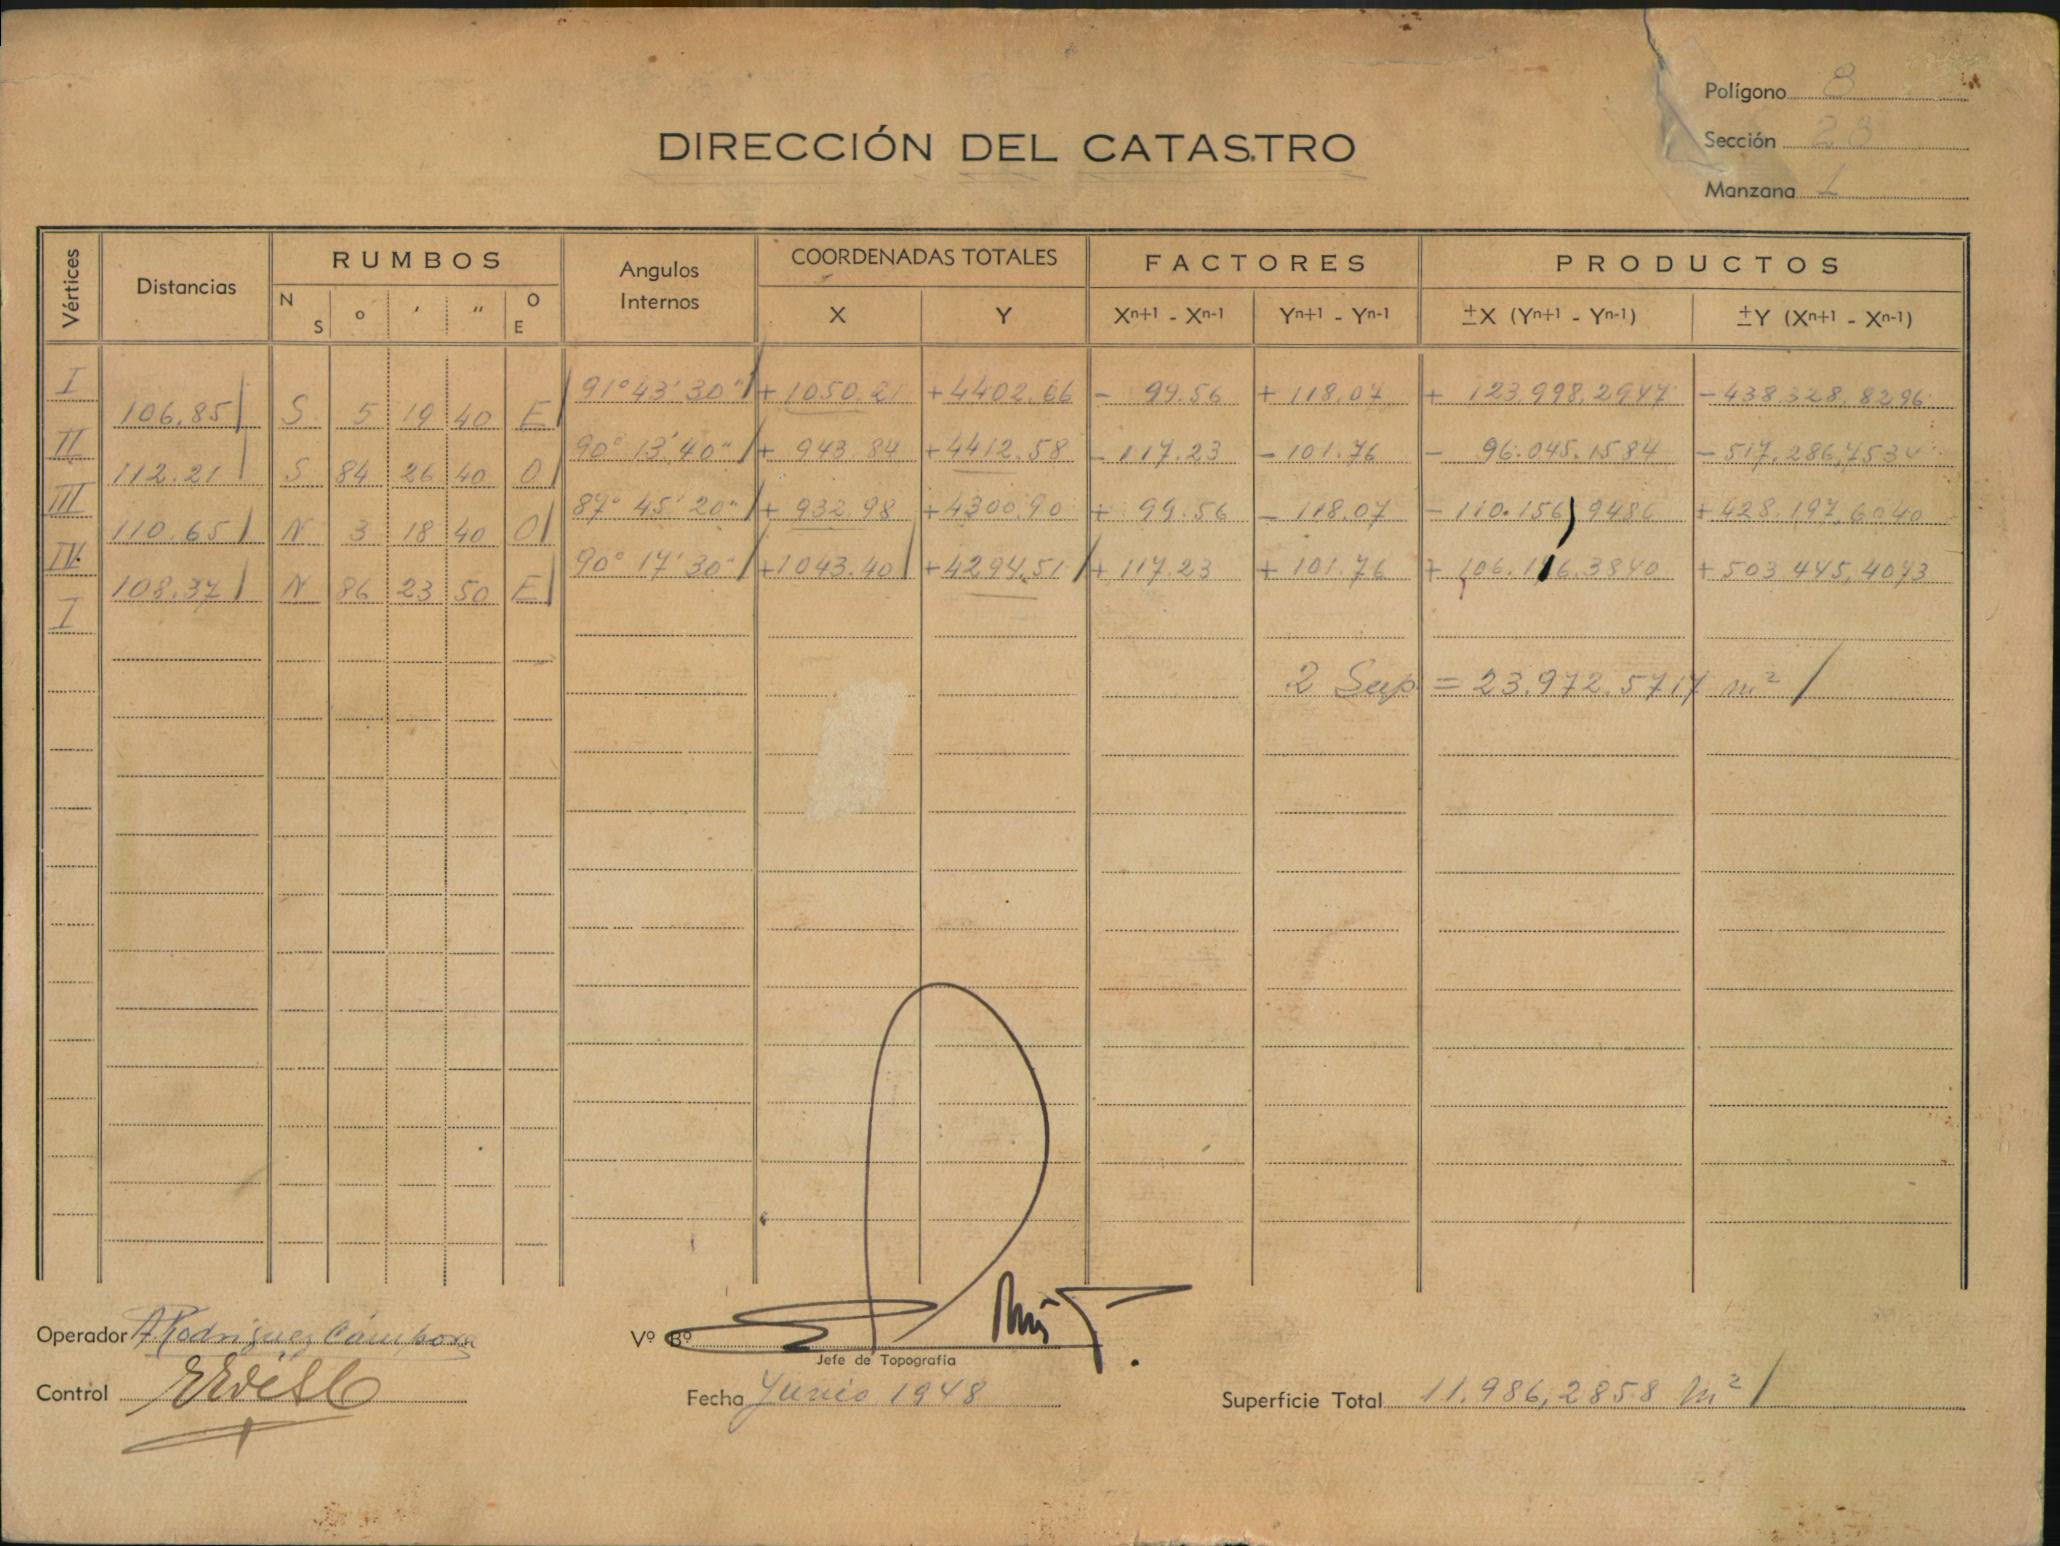 Polígono 8
Sección 28
Manzana 1
DIRECCIÓN DEL CATASTRO
Vértices Distancias RUMBOS Angulos Internos COORDENADAS TOTALES FACTORES PRODUCTOS
N S o ' " O E X Y Xn+1 - Xn-1 Yn+1 - Yn-1 ±X (Yn+1 - Yn-1) ±Y (Xn+1 - Xn-1)
I 91° 43' 30" + 1050.21 + 4402.66 - 99.56 + 118.07 + 123.998,2947 - 438.328,8296
106.85 S 5 19 40 E
II 90° 13' 40" + 943.84 + 4412.58 - 117.23 - 101.76 - 96.045.1584 - 517.286,7534
112.21 S 84 26 40 O
III 87° 45' 20" + 932.98 + 4300.90 + 99.56 - 118.07 - 110.156,9486 + 428.197,6040
110.65 N 3 18 40 O
IV 90° 17' 30" + 1043.40 + 4294.51 + 117.23 + 101.76 + 106.176.3840 + 503.445,4073
108.37 N 86 23 50 E
I
2 Sup = 23.972.5717 m²
Operador A Rodriguez Cámbora
Vº Bº
Jefe de Topografía
Control
Fecha Junio 1948
Superficie Total 11.986,2858 m²